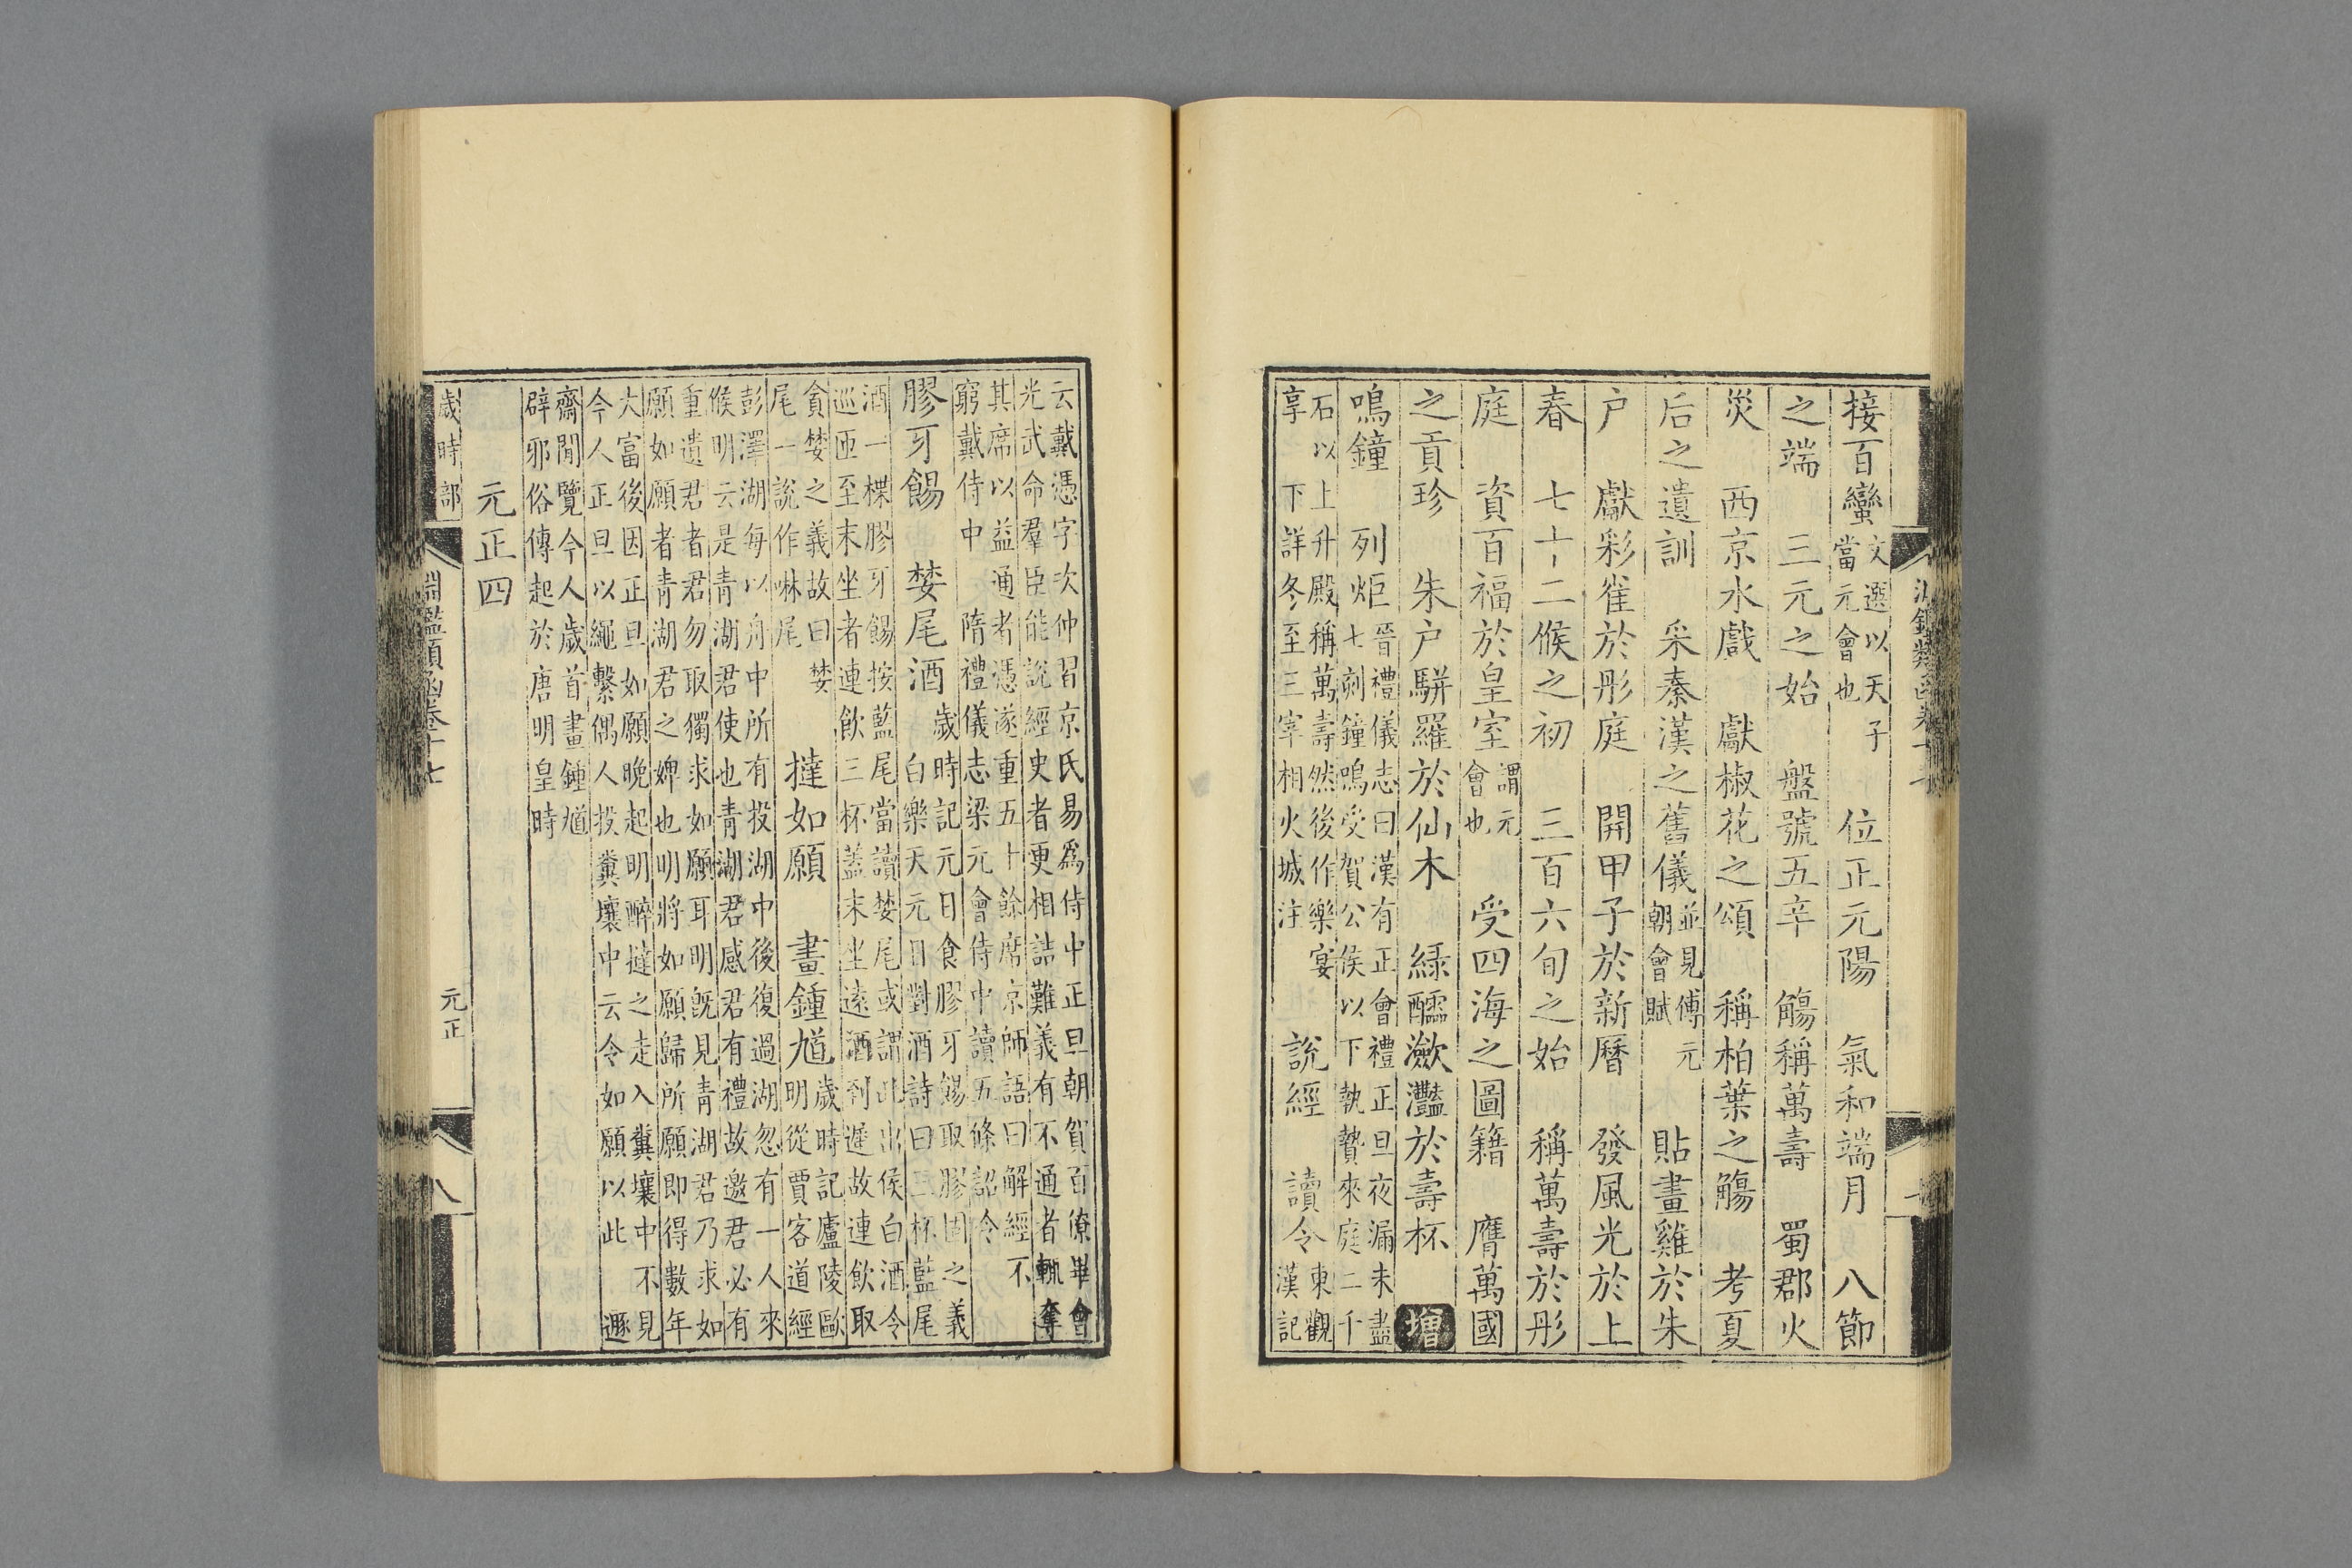 接百蠻文選以天子當元會也　位正元陽　氣和端月　八節
之端　三元之始　盤號五辛　觴稱萬壽　蜀郡火
災　西京水戲　獻椒花之頌　稱柏葉之觴　考夏
后之遺訓　采秦漢之舊儀並見傅元朝會賦　貼畫雞於朱
户　獻彩雀於彤庭　開甲子於新曆　發風光於上
春　七十二候之初　三百六旬之始　稱萬壽於彤
庭　資百福於皇室謂元會也　受四海之圖籍　膺萬國
之貢珍　朱户駢羅於仙木　綠醽瀲灩於壽杯　增
鳴鐘　列炬晉禮儀志曰漢有正會禮正旦夜漏未盡七刻鐘鳴受賀公侯以下執贄來庭二千
石以上升殿稱萬壽然後作樂宴享　下詳冬至三宰相火城注　說經　讀令東觀漢記
云戴憑字次仲習京氏易爲侍中正旦朝賀百僚畢會
光武命羣臣能說經史者更相詰難義有不通者輒奪
其席以益通者憑遂重五十餘席京師語曰解經不
窮戴侍中　隋禮儀志梁元會侍中讀五條詔令
膠牙餳　婪尾酒歲時記元日食膠牙餳取膠固之義　白樂天元日對酒詩曰三杯藍尾
酒一楪膠牙餳按藍尾當讀婪尾或謂出侯白酒令
巡匝至末坐者連飲三杯蓋末坐遠酒到遲故連飲取
貪婪之義故曰婪
尾一說作啉尾　撻如願　畫鍾馗歲時記廬陵歐明從賈客道經
彭澤湖每以舟中所有投湖中後復過湖忽有一人來
候明云是青湖君使也青湖君感君有禮故邀君必有
重遺君者君勿取獨求如願耳明既見青湖君乃求如
願如願者青湖君之婢也明將如願歸所願即得數年
大富後因正旦如願晚起明醉撻之走入糞壤中不見
今人正旦以繩繫偶人投糞壤中云令如願以此　遯
齋閒覽今人歲首畫鍾馗
辟邪俗傳起於唐明皇時
元正四
歲時部
淵鑑類函卷十七
元正
八